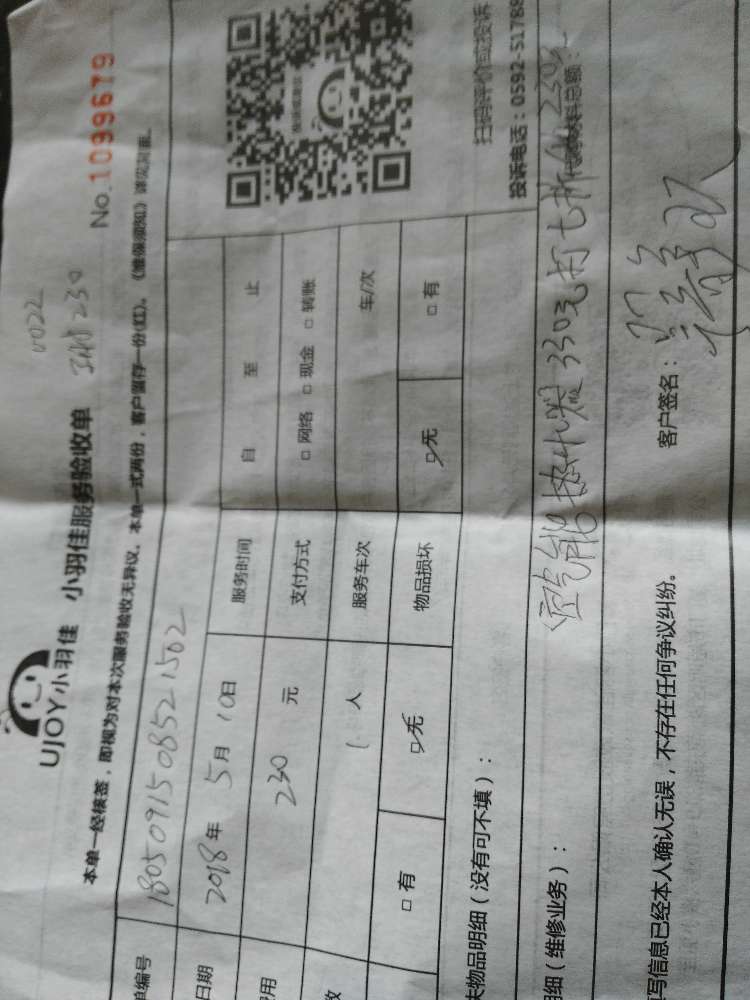 UJOY小羽佳 小羽佳服务验收单
0022
230
No.1099679
本单一经核签，即视为对本次服务验收无异议，本单一式两份，客户留存一份(红)。《维保须知》详见背面。
单编号 18050915085221502
日期 2018年5月10日 服务时间 自 至 止
费用 230 元 支付方式 □网络 □现金 □转账
数 1 人 服务车次 车/次
□有 □无 物品损坏 □无 □有
扫码评价或投诉
投诉电话：0592-51788
失物品明细（没有可不填）：
明细（维修业务）：
330元打七折 230元
代购材料总额：
写信息已经本人确认无误，不存在任何争议纠纷。
客户签名：